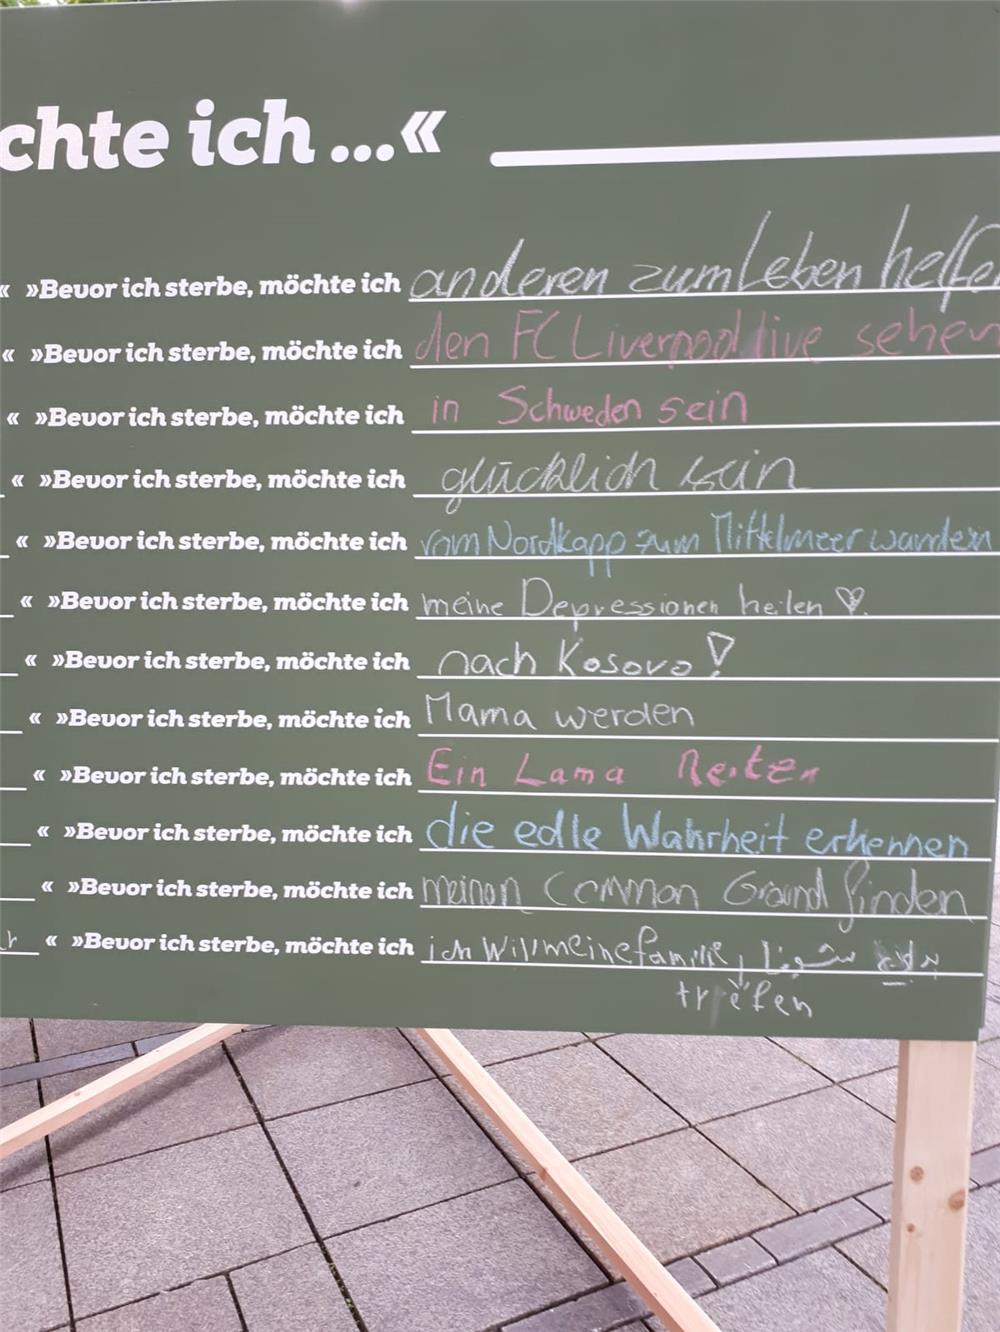 chte ich ...«
« »Bevor ich sterbe, möchte ich anderen zum Leben helfe
« »Bevor ich sterbe, möchte ich den FC Liverpool live sehen
« »Bevor ich sterbe, möchte ich in Schweden sein
« »Bevor ich sterbe, möchte ich glücklich sein
« »Bevor ich sterbe, möchte ich vom Nordkapp zum Mittelmeer wandern
« »Bevor ich sterbe, möchte ich meine Depressionen heilen ♡.
« »Bevor ich sterbe, möchte ich nach Kosovo!
« »Bevor ich sterbe, möchte ich Mama werden
« »Bevor ich sterbe, möchte ich Ein Lama Reiten
« »Bevor ich sterbe, möchte ich die edle Wahrheit erkennen
« »Bevor ich sterbe, möchte ich meinen Common Ground finden
« »Bevor ich sterbe, möchte ich ich Will meine familie
trefen